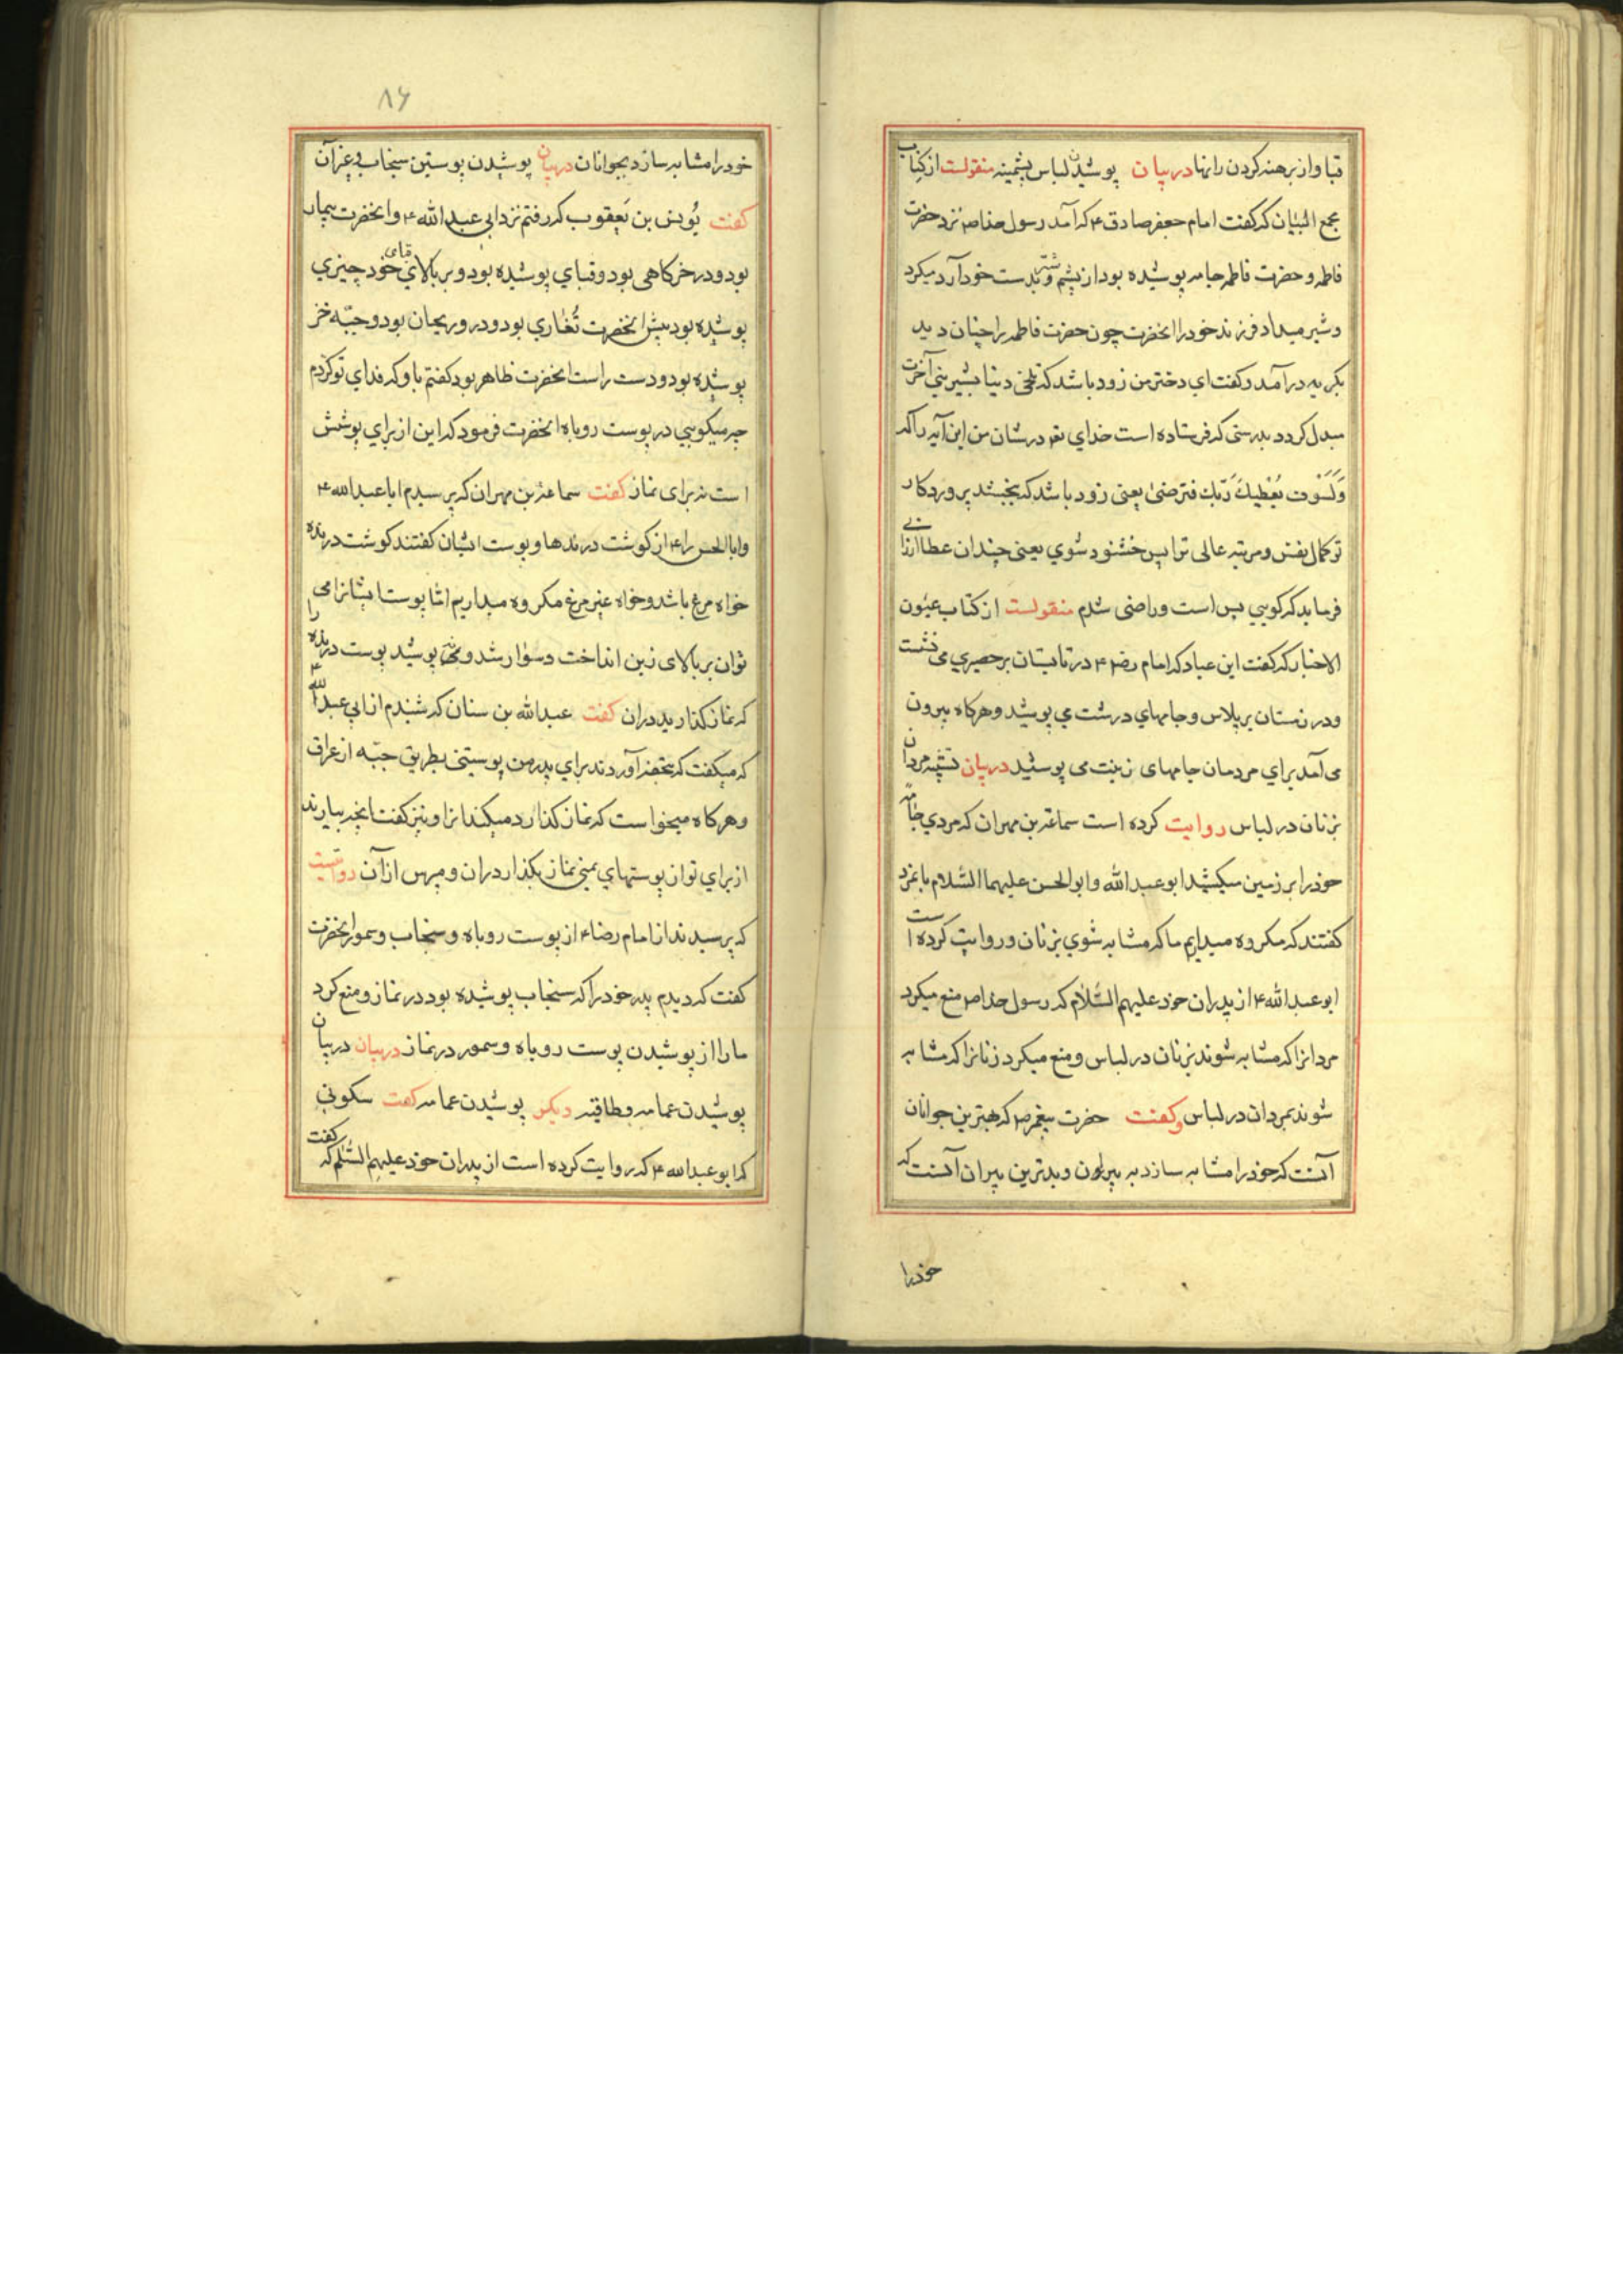 قبا و از برهنه کردن رانها در بیان پوشیدن لباس پشمینه منقولست از کتاب
مجمع البیان که کفت امام جعفر صادق ۴ که آمد رسول خدا ص نزد حضرت
فاطمه و حضرت فاطمه جامه پوشیده بود از پشم شتر و بدست خود آرد میکرد
و شیر میداد فرزند خود را انحضرت چون حضرت فاطمه را چنان دید
بکریه در آمد و کفت ای دختر من زود باشد که تلخی دنیا بشیرینی آخرت
مبدل کردد بدرستی که فرستاده است خدای تع در شان من این آیه را که
وَلَسَوْف یُعْطِیكَ رَبّك فترضیٰ یعنی زود باشد که بخشد پروردکار
تو کمال نفس و مرتبه عالی ترا پس خشنود شوی یعنی چندان عطا ارزانی
فرماید که کویی بس است و راضی شدم منقولست از کتاب عیون
الاخبار که کفت ابن عباد که امام رضا ۴ در تابستان بر حصیری می نشست
و در زمستان بر پلاس و جامهای درشت می پوشید و هرکاه بیرون
می آمد برای مردمان جامهای زینت می پوشید در بیان تشبه مردان
بزنان در لباس روایت کرده است سماعة بن مهران که مردی جامه
خود را بر زمین میکشید ابو عبد الله و ابو الحسن علیهما السّلام بانمرد
کفتند که مکروه میداریم ما که مشابه شوی بزنان و روایت کرده است
ابو عبد الله ۴ از پدران خود علیهم السّلام که رسول خدا ص منع میکرد
مردانرا که مشابه شوند بزنان در لباس و منع میکرد زنانرا که مشابه
شوند بمردان در لباس و کفت حضرت پیغمبر ص که بهترین جوانان
آنست که خود را مشابه سازد به پیران و بدترین پیران آنست که
خود را
۸۶
خود را مشابه سازد بجوانان در بیان پوشیدن پوستین سنجاب و غیر آن
کفت یُونس بن یَعقوب که رفتم نزد ابی عبد الله ۴ و انحضرت بیمار
بود و در خرکاهی بود و قبای پوشیده بود و بر بالای قبای خود چیزی
پوشیده بود پیش انحضرت تُغاری بود و در و ریحان بود و جبّه خز
پوشیده بود و دست راست انحضرت ظاهر بود کفتم باو که فدای تو کردم
چه میکویی در پوست روباه انحضرت فرمود که این از برای پوشش
است نه برای نماز کفت سماعة بن مهران که پرسیدم ابا عبد الله ۴
و ابا الحسن را ۴ از کوشت درندها و پوست ایشان کفتند کوشت درنده
خواه مرغ باشد و خواه غیر مرغ مکروه میداریم امّا پوست ایشانرا می
توان بر بالای زین انداخت و سوار شد و نمی پوشید پوست درنده را
که نماز کذارید دران کفت عبد الله بن سنان که شنیدم از ابی عبد الله ۴
که میکفت که بتحفه آوردند برای پدر من پوستینی بطریق جبّه از عراق
و هرکاه میخواست که نماز کذارد میکند انرا و نیز کفت انچه بیارند
از برای تو از پوستهای یمنی نماز بکذار دران و مپرس از آن روایتست
که پرسیدند از امام رضا ۴ از پوست روباه و سنجاب و سمور انحضرت
کفت که دیدم پدر خود را که سنجاب پوشیده بود در نماز و منع کرد
ما را از پوشیدن پوست روباه و سمور در نماز در بیان در بیان
پوشیدن عمامه و طاقیه دیکر پوشیدن عمامه کفت سکونی
که ابو عبد الله ۴ که روایت کرده است از پدران خود علیهم السّلم که کفت